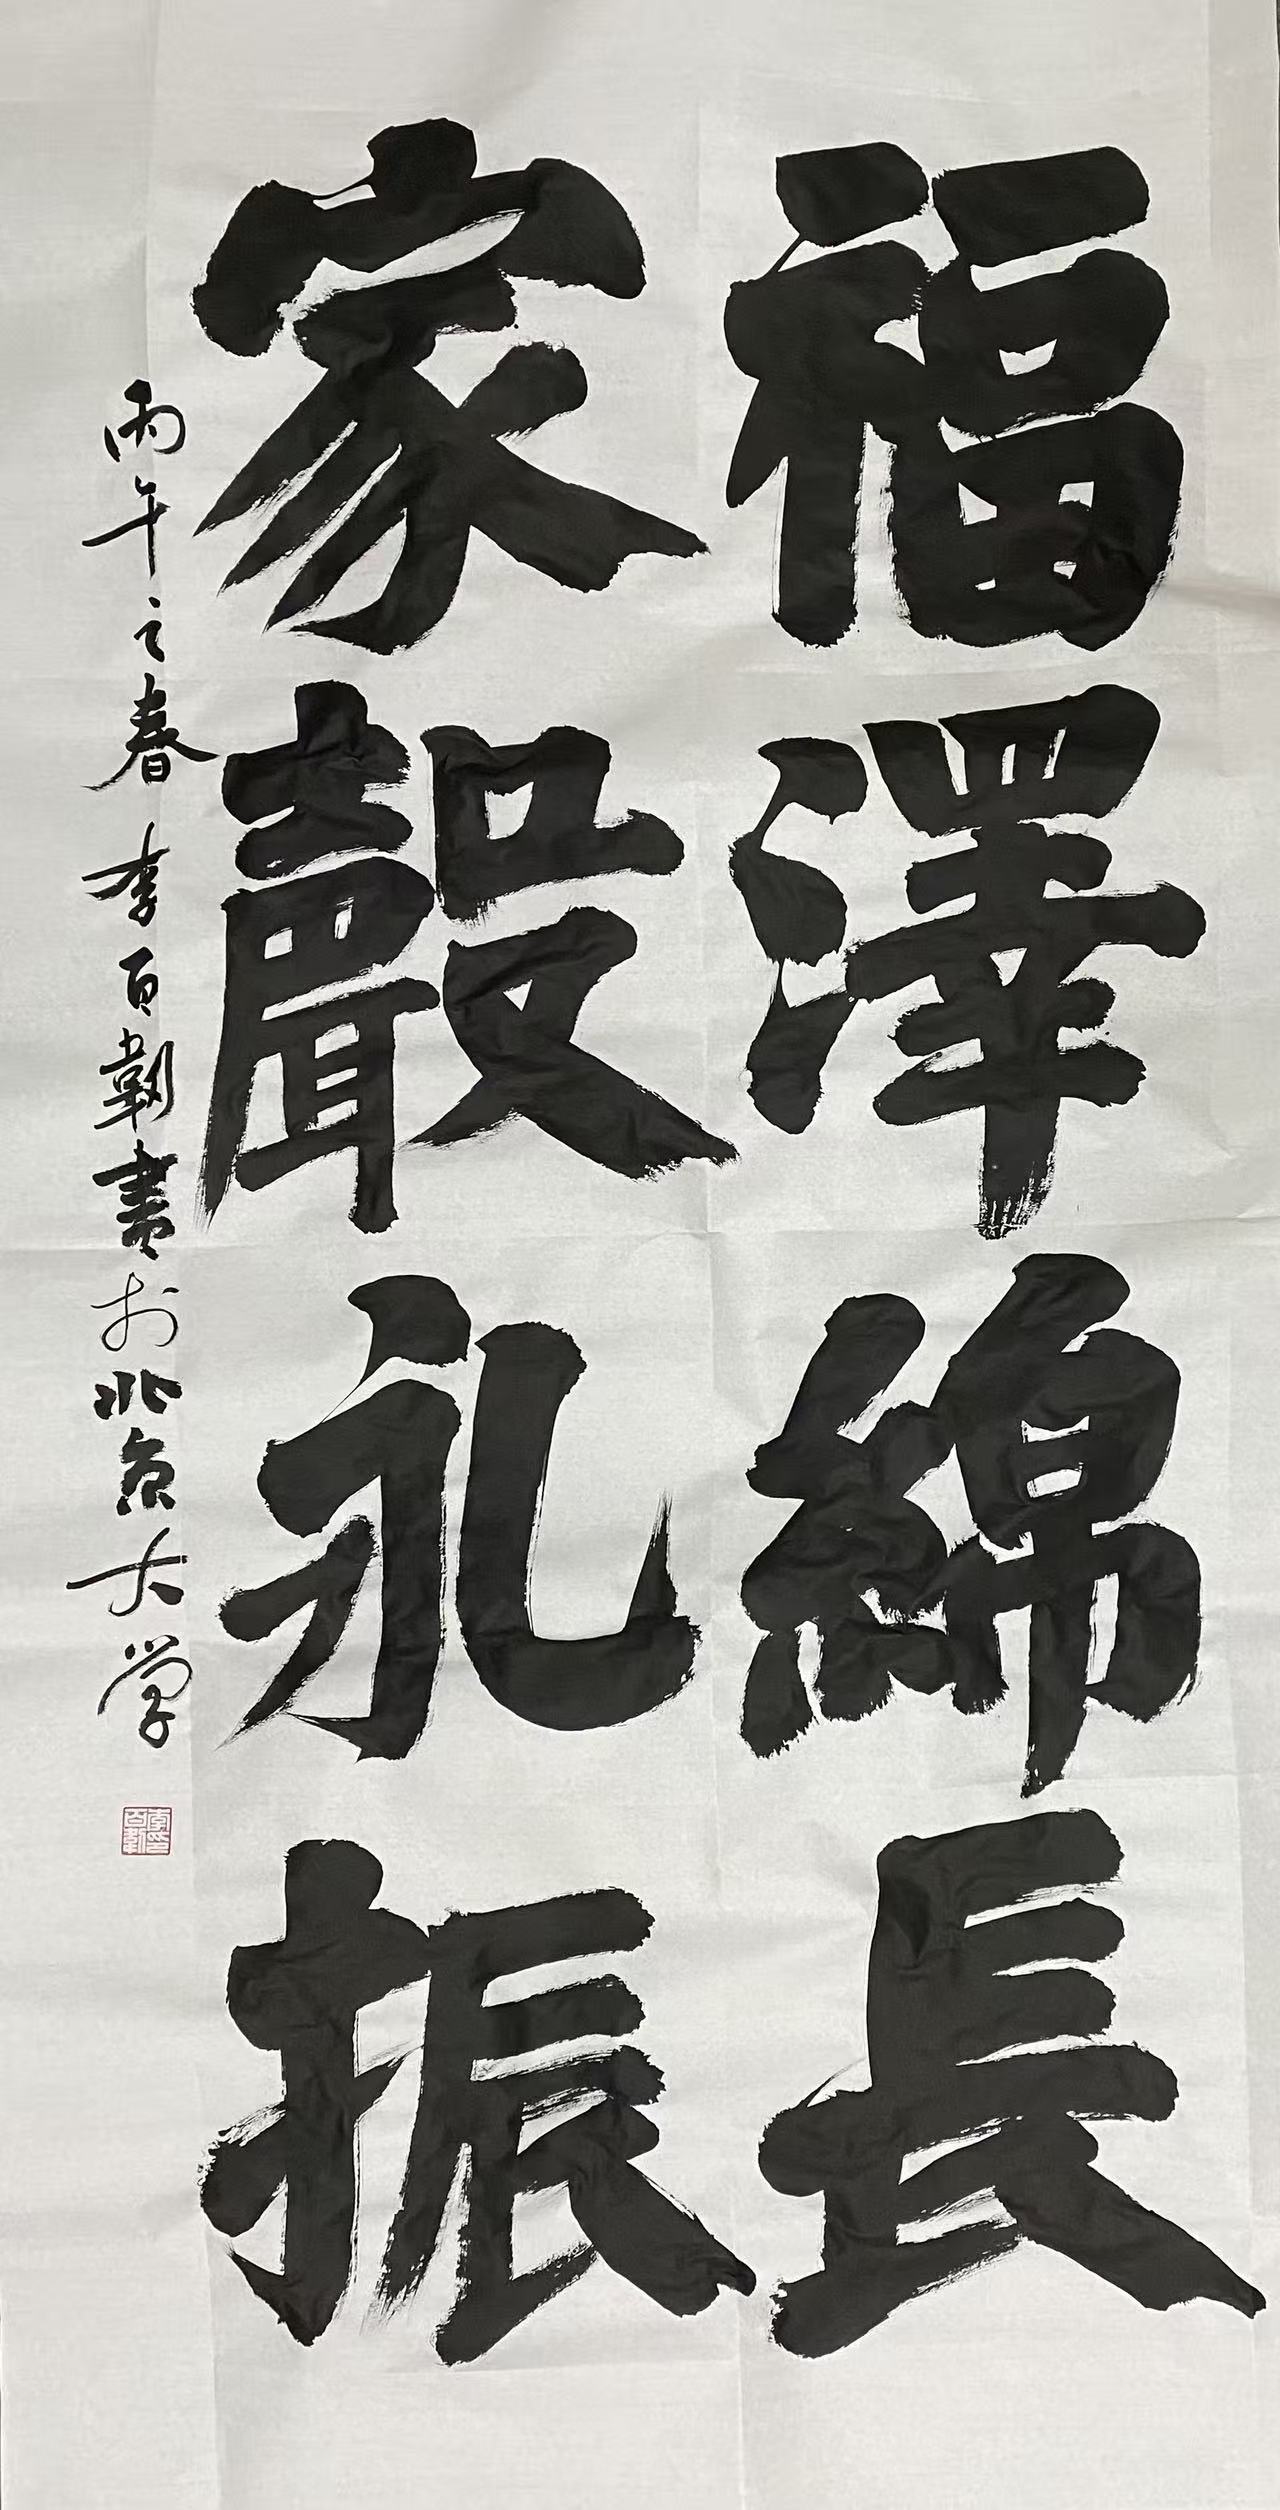 福澤綿長
家聲永振
丙午之春 李百韌書於北京大学
李印百韌